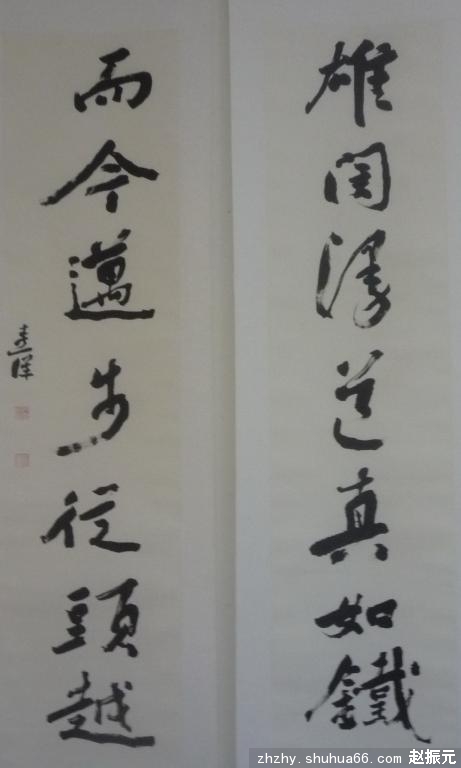 雄関漫道真如鐵
而今邁步從頭越
zhzhy.shuhua66.com 赵振元